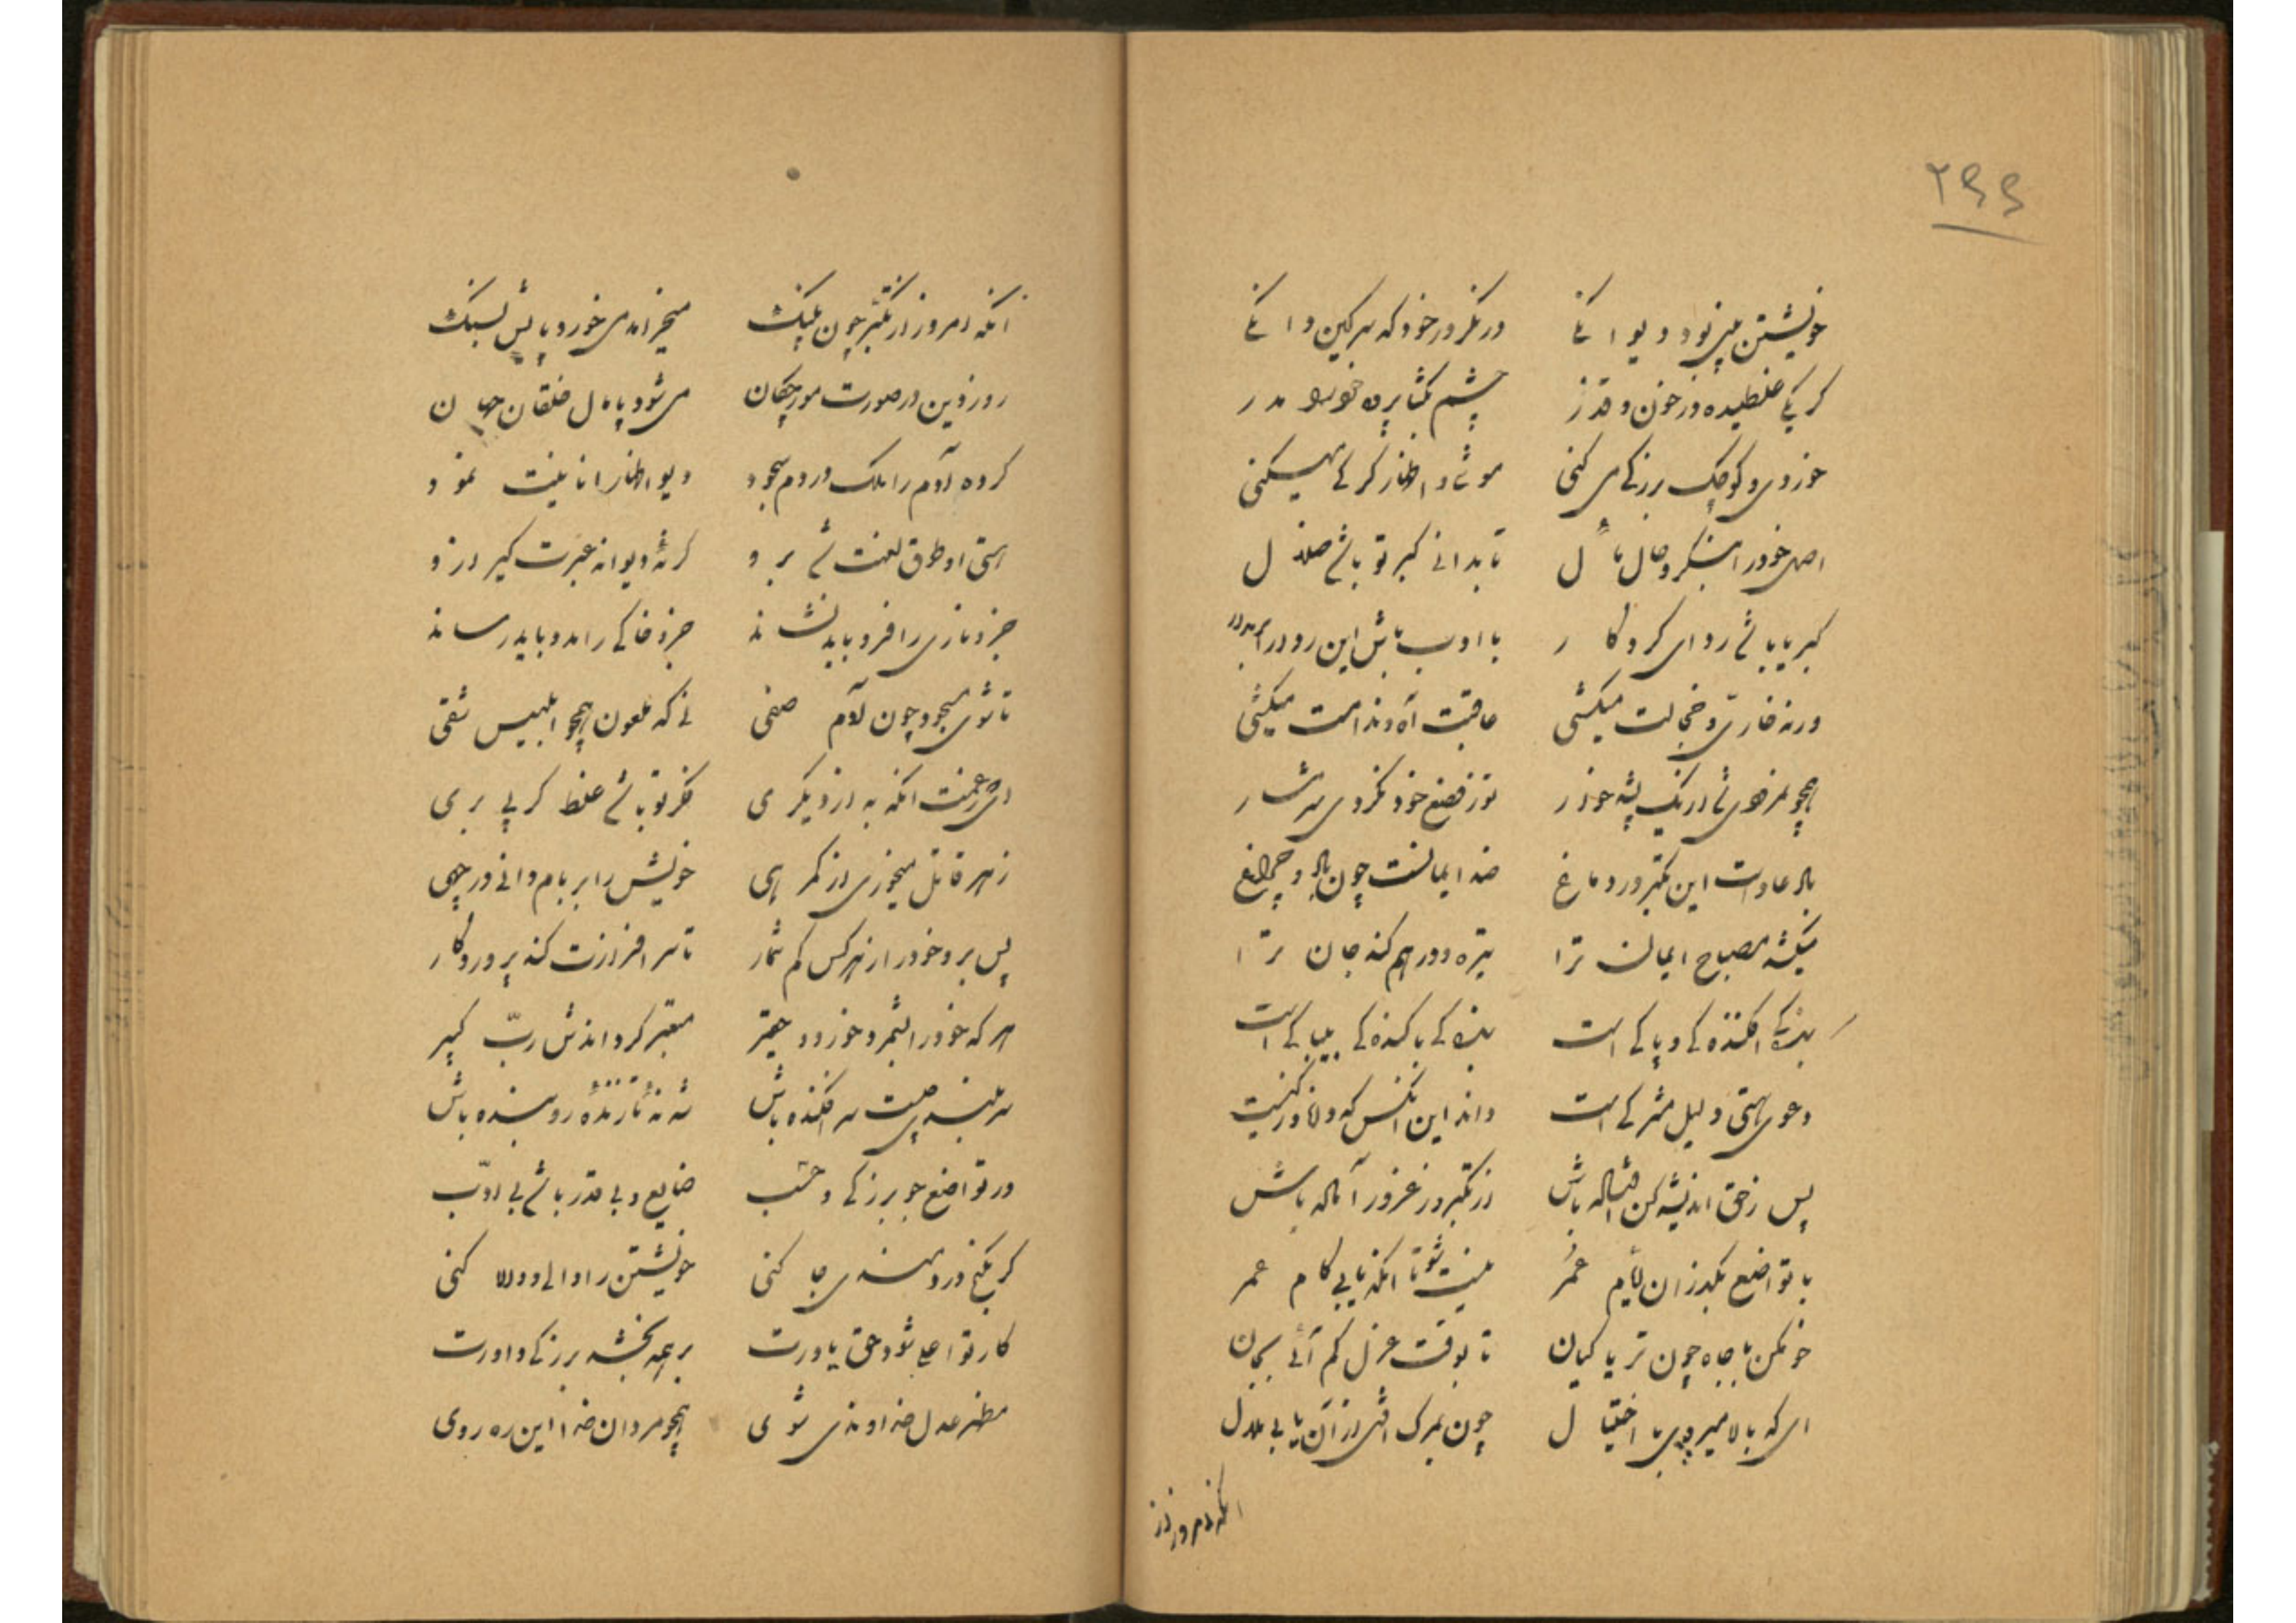 ۲۶۶
خویشتن بینی بود دیوانگی در نگر در خود که سرگین دانگی
گر یکی غلطیده در خون و قذر چشم بگشا پرده خود مدر
خوردی و کوچک بزرگی می کنی موشی و اظهار گرگی میکنی
اصل خود را بنگر و حال مآل تا بدانی کبر تو باشد ضلال
کبریا باشد ردای کردگار با ادب باش این ردا را
ورنه خاری و خجالت میکشی عاقبت آه و ندامت میکشی
همچو نمرودی شد از یک پشه خوار تو ز فضع خود نکردی شرمسار
باد عادست این تکبر در دماغ ضد ایمانست چون باد و چراغ
میکشد مصباح ایمان ترا تیره و درهم کند جان ترا
بندگی افکندگی و پاکی است بندگی با گندگی بیباکی است
دعوی هستی دلیل مشرکی است داند این آنکس که دلا در
پس ز حق اندیشه کن آله باش از تکبر وز غرور آگاه باش
با تواضع بگذران ایام عمر نیست شو تا آنکه یابی کام عمر
خو مکن با جاه چون تریاکیان تا بوقت عزل کم آئی بجان
ای که بالا میروی با اختیال چون بمرگ افتی از آن یابی ملال
آنکه امروز از
آنکه امروز از تکبر چون پلنگ میخرامد می خورد پایش بسنگ
روز دین در صورت مورچگان می شود پامال خلقان جهان
کرده آدم را ملک در دم سجود دیو اظهار انانیت نمود
هستی او طوق لعنت شد برو گر نهٔ دیوانه عبرت گیر ازو
جزو ناری را فرو باید نشاند جزو خاکی را مدد باید رساند
تا شوی مسجود چون آدم صفی نی که ملعون همچو ابلیس شقی
ای رعونت آنکه به از دیگری فکر تو باشد غلط گر پی بری
زهر قاتل میخوری از گمرهی خویش را بر بام دانی در چهی
پس برو خود را ز هر کس کم شمار تا سرافرازت کند پروردگار
هر که خود را بشمرد خورد و حقیر معتبر گرداندش ربّ کبیر
سر بلندی چیست سرافکنده باش شه نهٔ تازنده رو بنده باش
در تواضع جو بزرگی و حسب ضایع و بی قدر باشد بی ادب
گر بکنج دردمندی جا کنی خویشتن را والی و والا کنی
کار تو اعلی شود حق یاورت بر همه بخشد بزرگی داورت
مظهر عدل خداوندی شوی همچو مردان خدا این ره روی